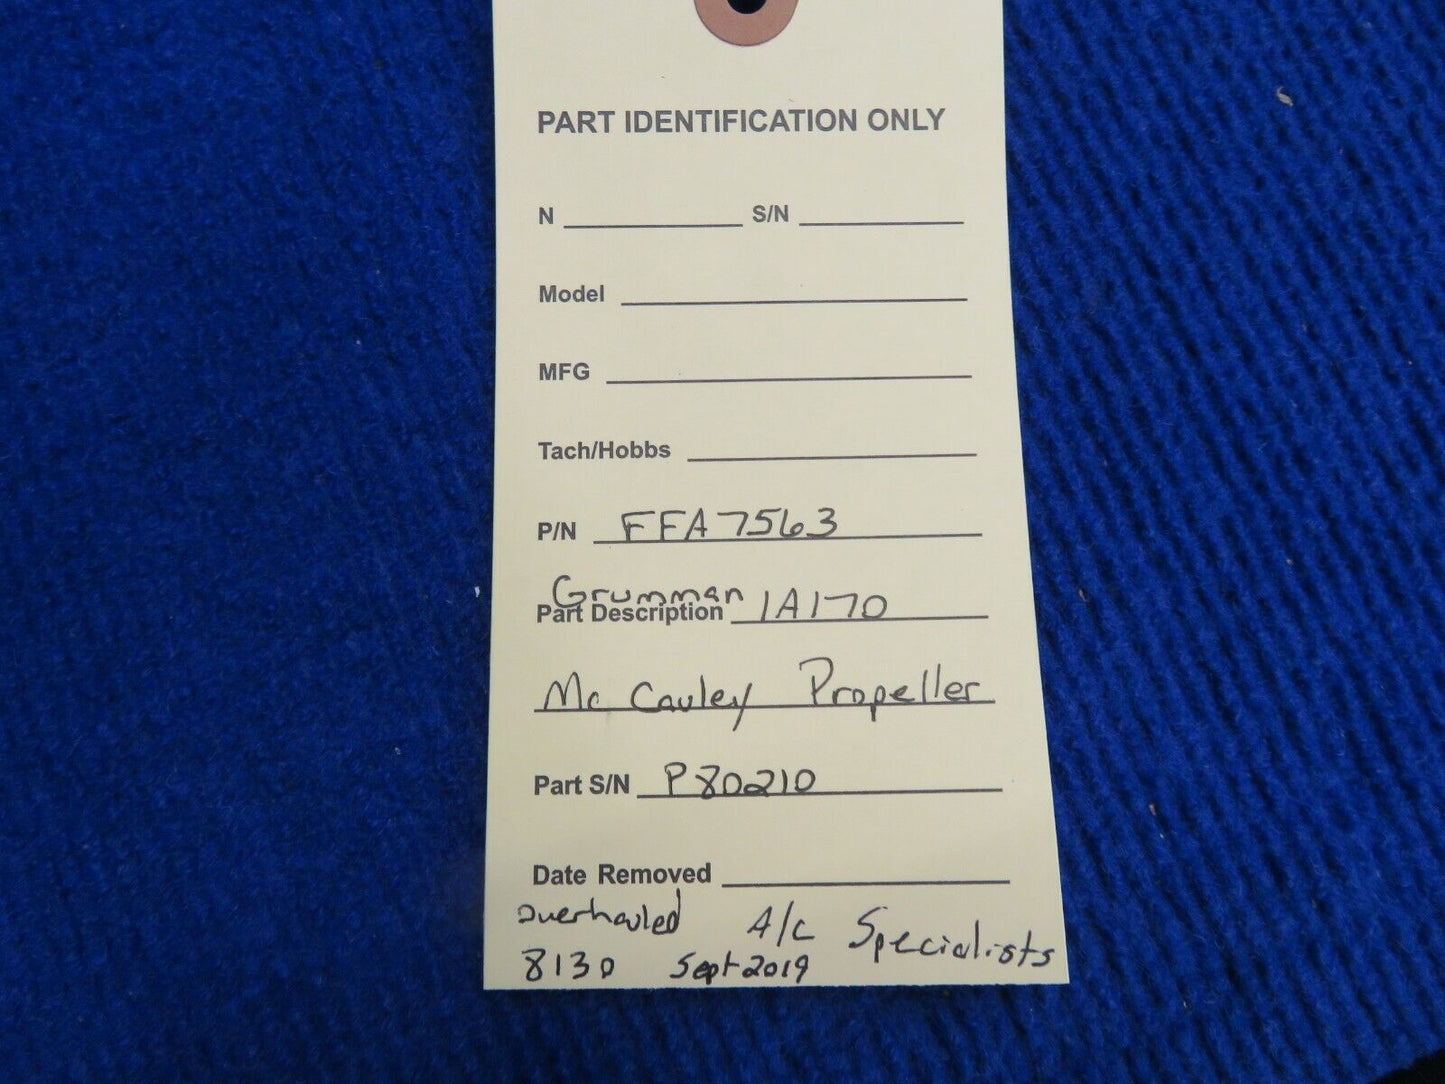 PART IDENTIFICATION ONLY
N S/N
Model
MFG
Tach/Hobbs
P/N FFA7563
Grumman
Part Description 1A170
McCauley Propeller
Part S/N P80210
Date Removed
overhauled A/C Specialists
8130 Sept 2019